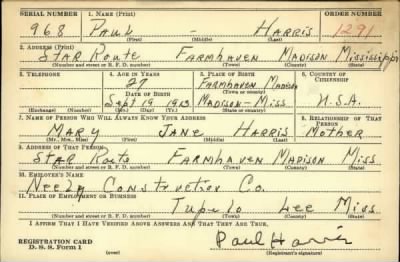 SERIAL NUMBER 1. NAME (Print) ORDER NUMBER
968 Paul - Harris 1291
(First) (Middle) (Last)
2. ADDRESS (Print)
Star Route Farmhaven Madison Mississippi
(Number and street or R. F. D. number) (Town) (County) (State)
3. TELEPHONE 4. AGE IN YEARS 5. PLACE OF BIRTH 6. COUNTRY OF CITIZENSHIP
27 Farmhaven Madison
DATE OF BIRTH (Town or county)
Sept 19 1913 Madison - Miss. U.S.A.
(Exchange) (Number) (Mo.) (Day) (Yr.) (State or country)
7. NAME OF PERSON WHO WILL ALWAYS KNOW YOUR ADDRESS 8. RELATIONSHIP OF THAT PERSON
Mary Jane Harris Mother
(Mr., Mrs., Miss) (First) (Middle) (Last)
9. ADDRESS OF THAT PERSON
Star Route Farmhaven Madison Miss
(Number and street or R. F. D. number) (Town) (County) (State)
10. EMPLOYER'S NAME
Construction Co.
11. PLACE OF EMPLOYMENT OR BUSINESS
Tupelo Lee Miss
(Number and street or R. F. D. number) (Town) (County) (State)
I AFFIRM THAT I HAVE VERIFIED ABOVE ANSWERS AND THAT THEY ARE TRUE.
REGISTRATION CARD
D. S. S. Form 1
Paul Harris
(Registrant's signature)